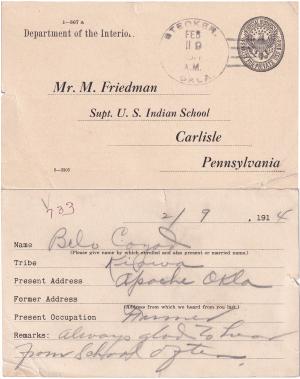 1-567 a
Department of the Interior.
STECKER,
FEB
9
A.M.
OKLA.
Mr. M. Friedman
Supt. U. S. Indian School
Carlisle
Pennsylvania
5-3207
733
2/9, 1914
Name Belo Cozad
(Please give name by which enrolled and also present or married name.)
Tribe Kiowa
Present Address Apache Okla
Former Address
(Address from which we heard from you last.)
Present Occupation Farmer
Remarks: Always glad to hear
from School often